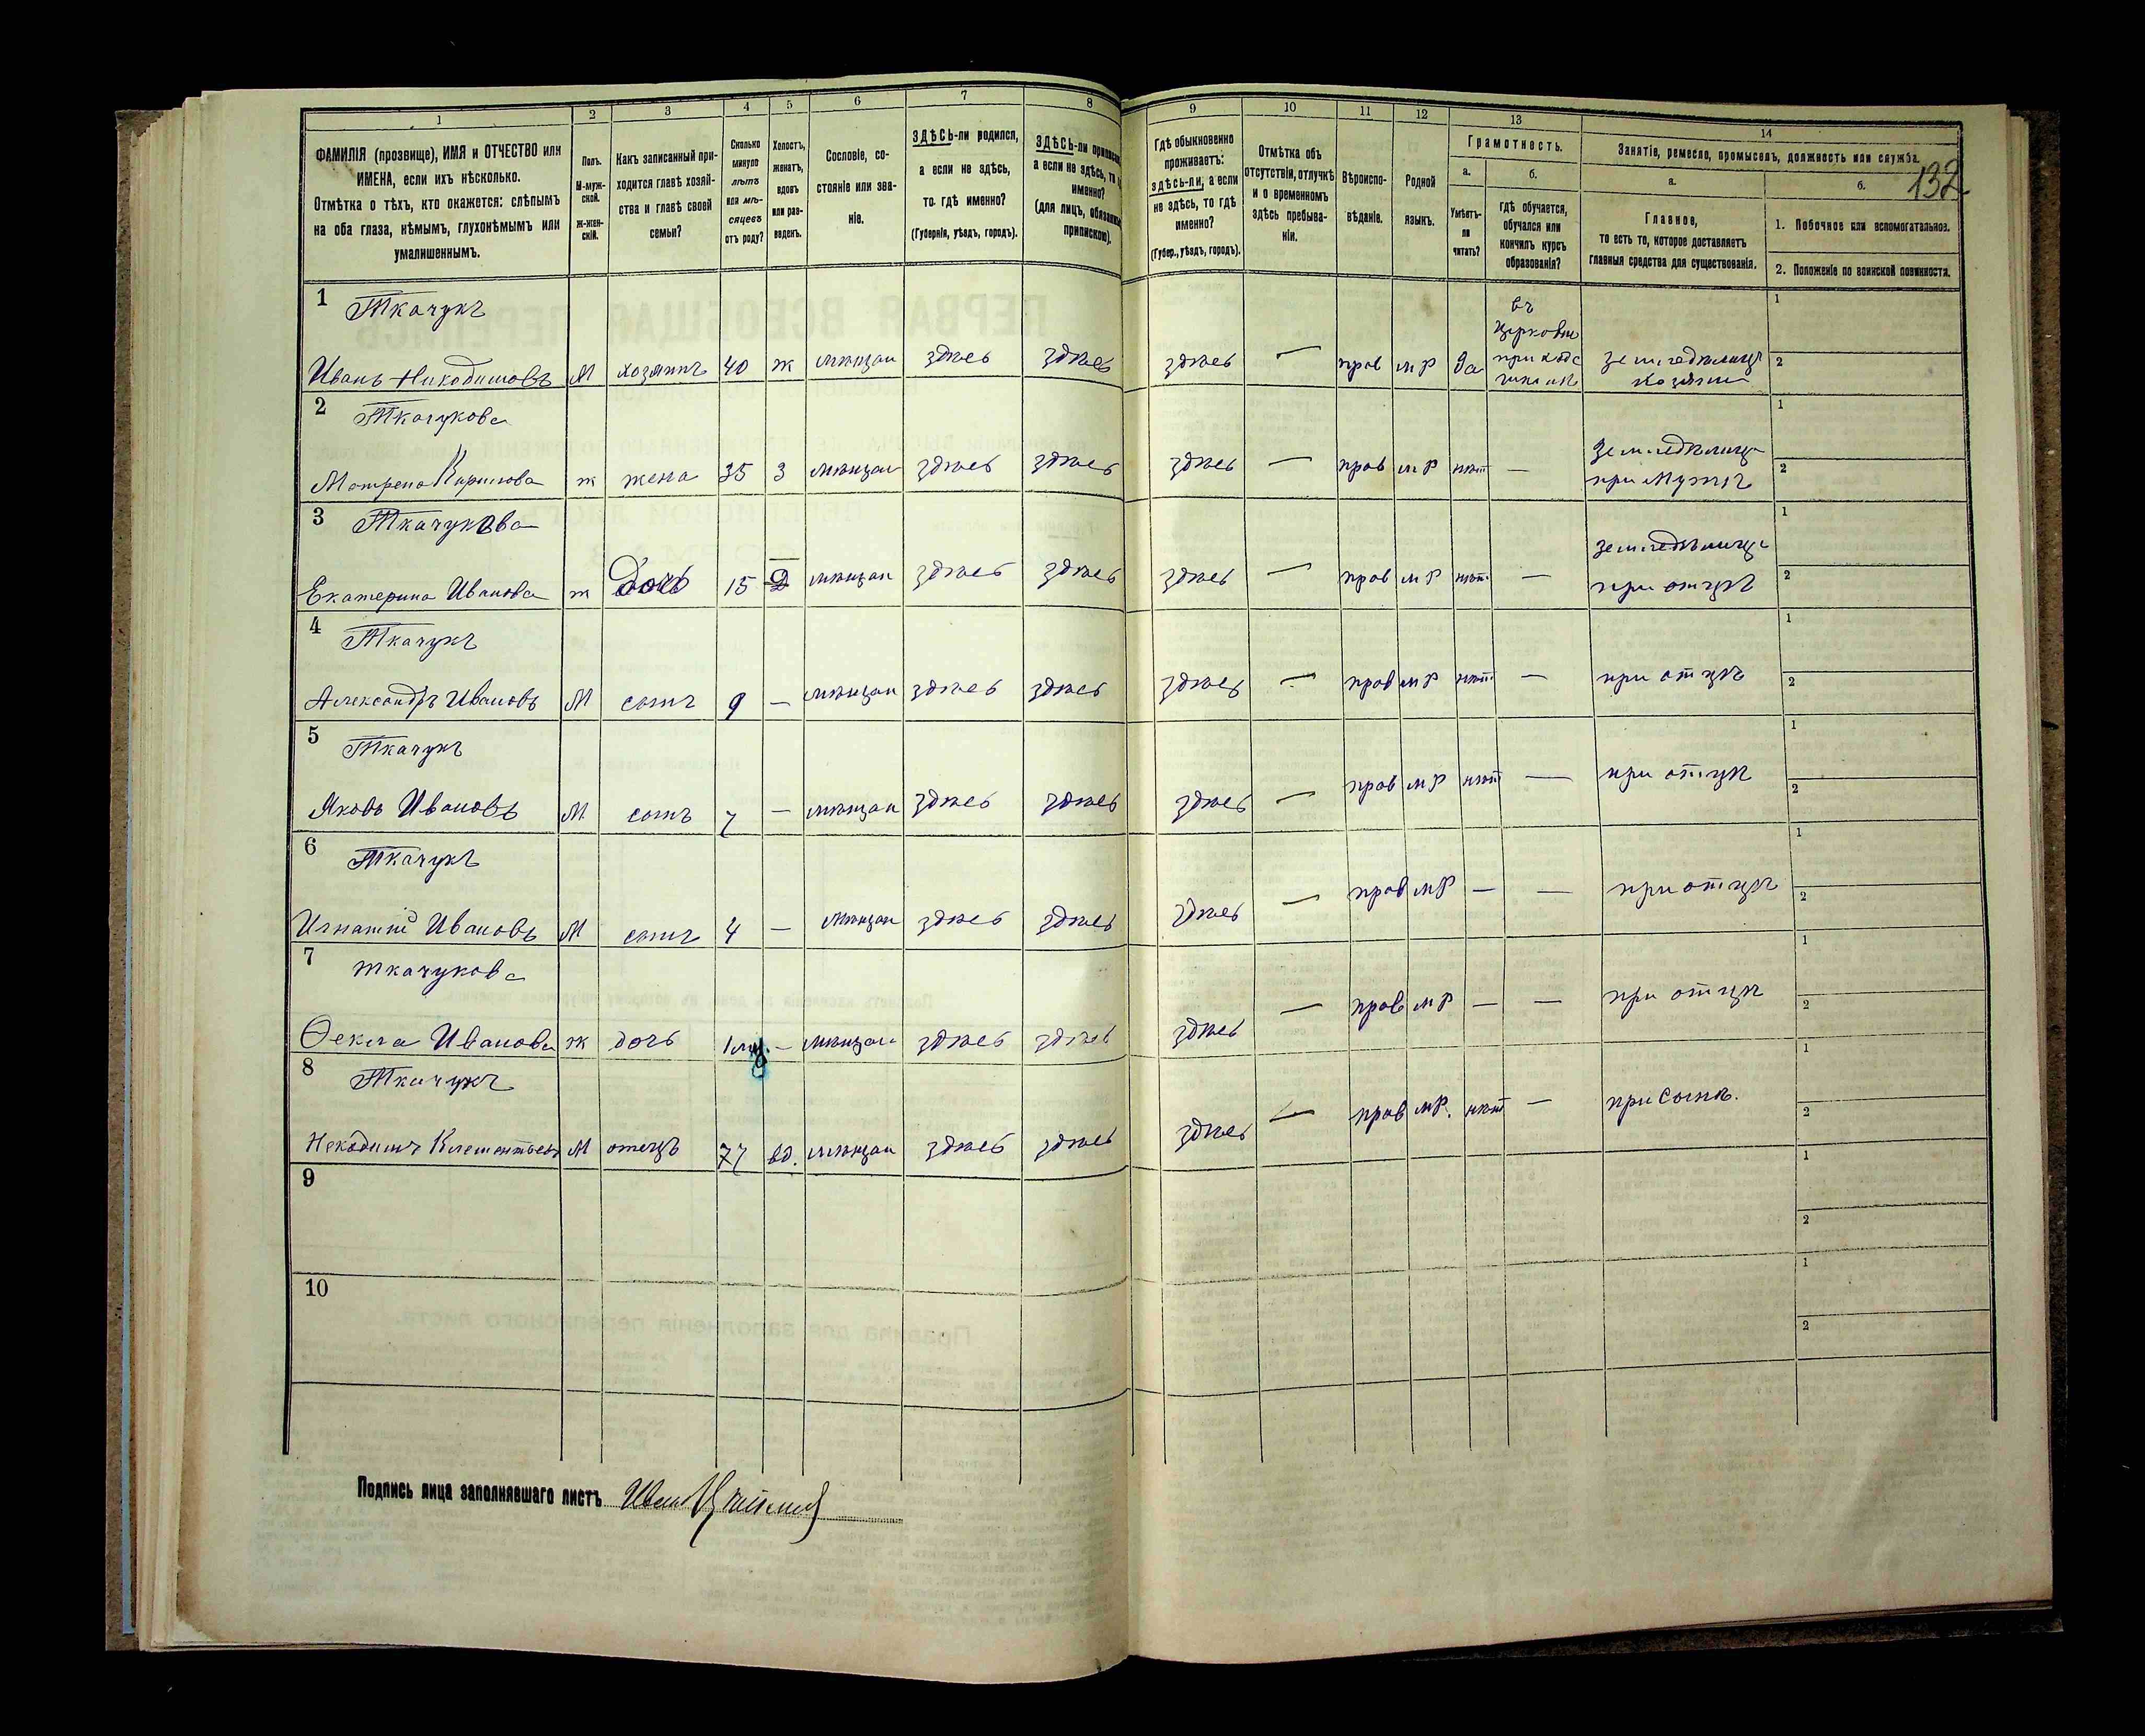 1 2 3 4 5 6 7 8 9 10 11 12 13 14
ФАМИЛІЯ (прозвище), ИМЯ и ОТЧЕСТВО или
ИМЕНА, если ихъ нѣсколько.
Отмѣтка о тѣхъ, кто окажется: слѣпымъ
на оба глаза, нѣмымъ, глухонѣмымъ или
умалишеннымъ.
Полъ.
М-муж-
ской.
Ж-жен-
скій.
Какъ записанный при-
ходится главѣ хозяй-
ства и главѣ своей
семьи?
Сколько
минуло
лѣтъ
или мѣ-
сяцевъ
отъ роду?
Холостъ,
женатъ,
вдовъ
или раз-
веденъ.
Сословіе, со-
стояніе или зва-
ніе.
ЗДѢСЬ-ли родился,
а если не здѣсь,
то гдѣ именно?
(Губернія, уѣздъ, городъ).
ЗДѢСЬ-ли
а если не здѣсь, то
именно?
(для лицъ,
припискою).
Гдѣ обыкновенно
проживаетъ:
здѣсь-ли, а если
не здѣсь, то гдѣ
именно?
(Губер., уѣздъ, городъ).
Отмѣтка объ
отсутствіи, отлучкѣ
и о временномъ
здѣсь пребыва-
ніи.
Вѣроиспо-
вѣданіе.
Родной
языкъ.
Грамотность.
а.
Умѣетъ-
ли
читать?
б.
гдѣ обучается,
обучался или
кончилъ курсъ
образованія?
Занятіе, ремесло, промыселъ, должность или служба.
а.
Главное,
то есть то, которое доставляетъ
главныя средства для существованія.
б.
132
1. Побочное или вспомогательное.
2. Положеніе по воинской повинности.
1 Ткачукъ
Иванъ Никодимовъ М хозяинъ 40 ж мѣщан здѣсь здѣсь здѣсь — прав мР да
въ
церковно
приходс
земледѣлецъ
хозяинъ
1
2
2 Ткачукова
Матрена Кирилова ж жена 35 З мѣщан здѣсь здѣсь здѣсь — прав мР нѣт —
земледѣлица
при мужѣ
1
2
3 Ткачукова
Екатерина Иванова ж дочь 15 — мѣщан здѣсь здѣсь здѣсь — прав мР нѣт —
земледѣлица
при отцѣ
1
2
4 Ткачукъ
Александръ Ивановъ М сынъ 9 — мѣщан здѣсь здѣсь здѣсь — прав мР нѣт — при отцѣ
1
2
5 Ткачукъ
Яковъ Ивановъ М сынъ 7 — мѣщан здѣсь здѣсь здѣсь — прав мР нѣт — при отцѣ
1
2
6 Ткачукъ
Игнатій Ивановъ М сынъ 4 — мѣщан здѣсь здѣсь здѣсь — прав мР — — при отцѣ
1
2
7 Ткачукова
Ѳекла Иванова ж дочь 1 мц. — мѣщан здѣсь здѣсь здѣсь — прав мР — — при отцѣ
1
2
8 Ткачукъ
Никодимъ Клементьевъ М отецъ 77 вд. мѣщан здѣсь здѣсь здѣсь — прав мР. нѣт — при сынѣ.
1
2
9
1
2
10
1
2
Подпись лица заполнявшаго листъ Иван